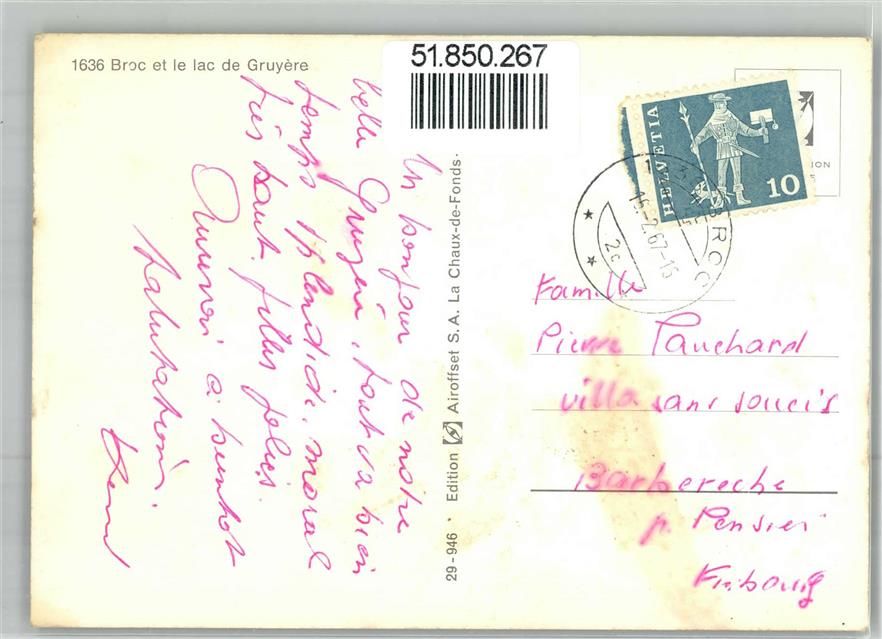 1636 Broc et le lac de Gruyère
51.850.267
HELVETIA
10
BROC
16.-2.67-15
2c
ION
Un bonjour de notre
belle Gruyère, tout va bien
temps splendide, moral
très haut, filles jolies.
à bientot
Salutations.
29-946 · Edition Airoffset S.A. La Chaux-de-Fonds·
Famille
Pierre Pauchard
villa sans soucis
Barbereche
p. Pensier
Fribourg